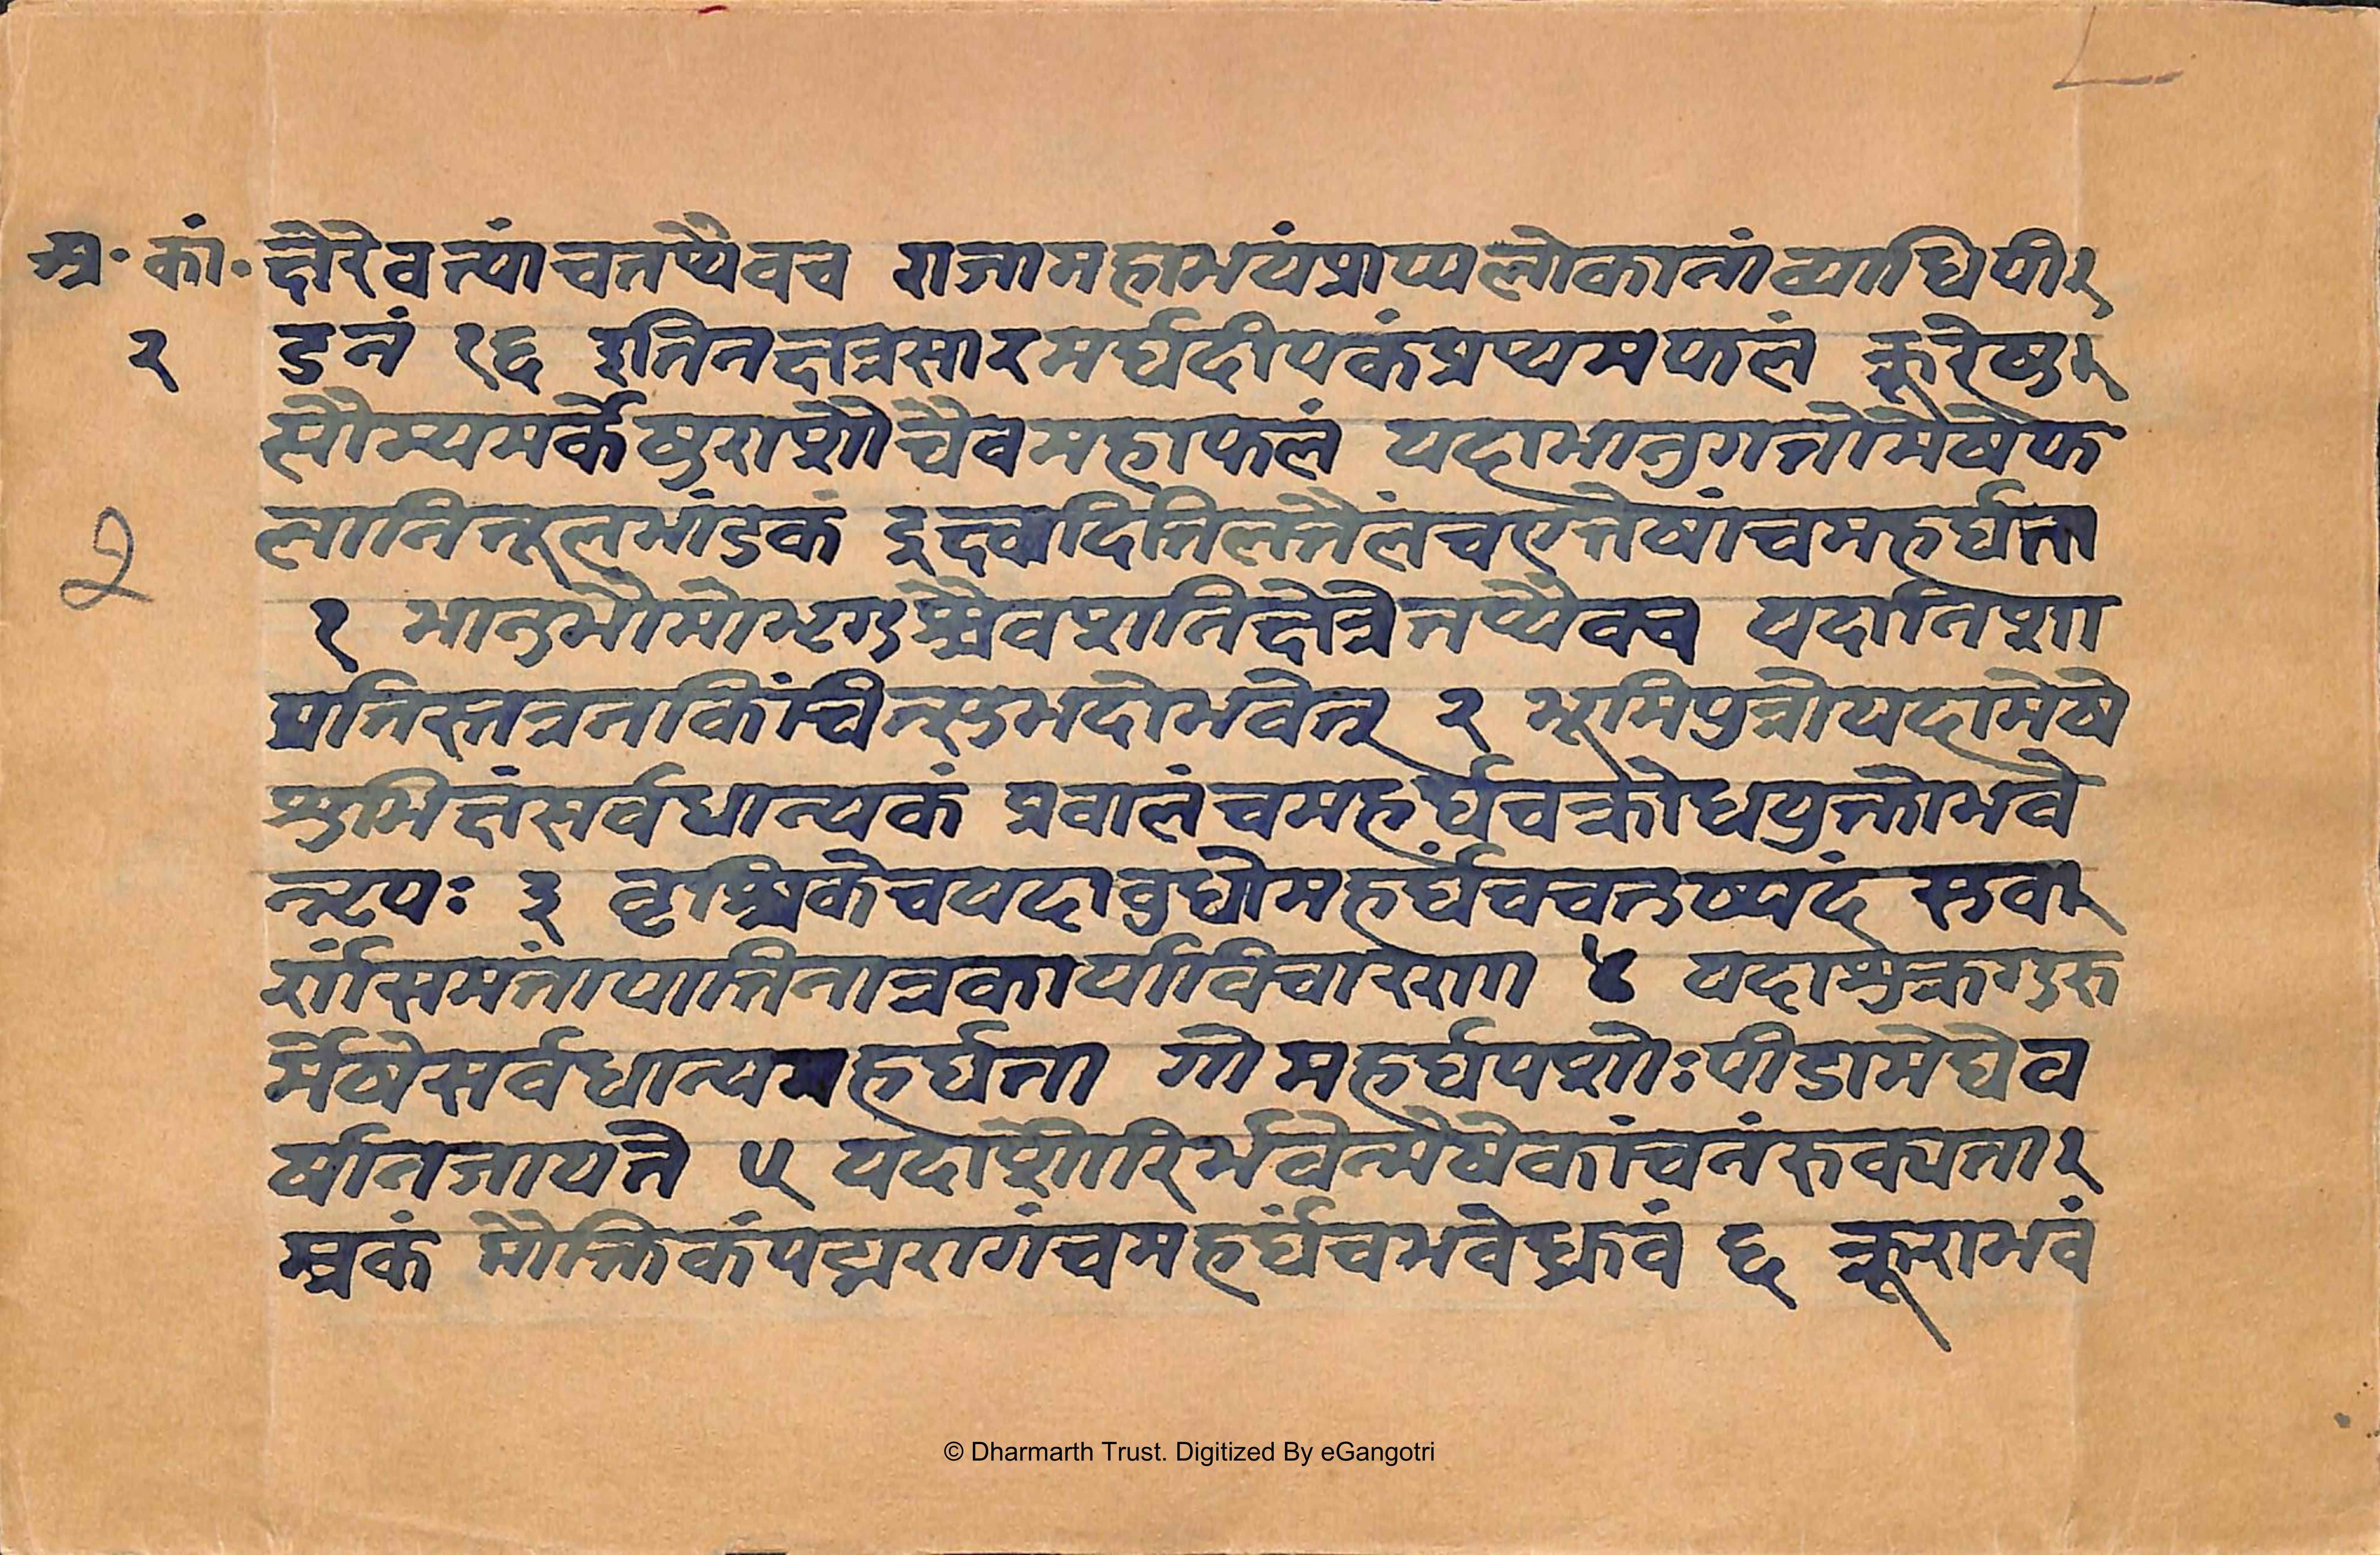 अ॰ कां॰ क्षैरेवत्यांचतथैवच राजामहाभयंप्राप्यलोकानांव्याधिपी
२ डनं १६ इतिनक्षत्रसारमर्घदीपकंप्रथमफलं क्रूरेषु
सौम्यमर्केषुराशौचैवमहाफलं यदाभानुगतोमेषेफ
२ लानितूलभांडकं इक्ष्वादितिलतैलंचएतेषांचमहर्घता
१ भानुभौमोभृगुश्चैवशनिक्षेत्रेतथैवच यदातिशा
यतिस्तत्रनकिंचीत्सुभदोभवेत् २ भूमिपुत्रोयदामेषे
शुभिक्षंसर्वधान्यकं प्रवालंचमहर्घचक्रोधयुक्तोभवे
न्नृपः ३ वृश्चिकेचयदाबुधोमहर्घंचचतुष्पदं सुवा
र्सिसमतांयातिनात्रकार्याविचारणा ४ यदाशुक्रगुरु
र्मेषेसर्वधान्यमहर्घता गोमहर्घपशोःपीडामेघेव
र्षानजायते ५ यदाशौरिर्भवेन्मेषेकांचनंरुक्यता
म्रकं मौक्तिकंपद्मरागंचमहर्घंचभवेध्रुवं ६ क्रूराभवं
© Dharmarth Trust. Digitized By eGangotri